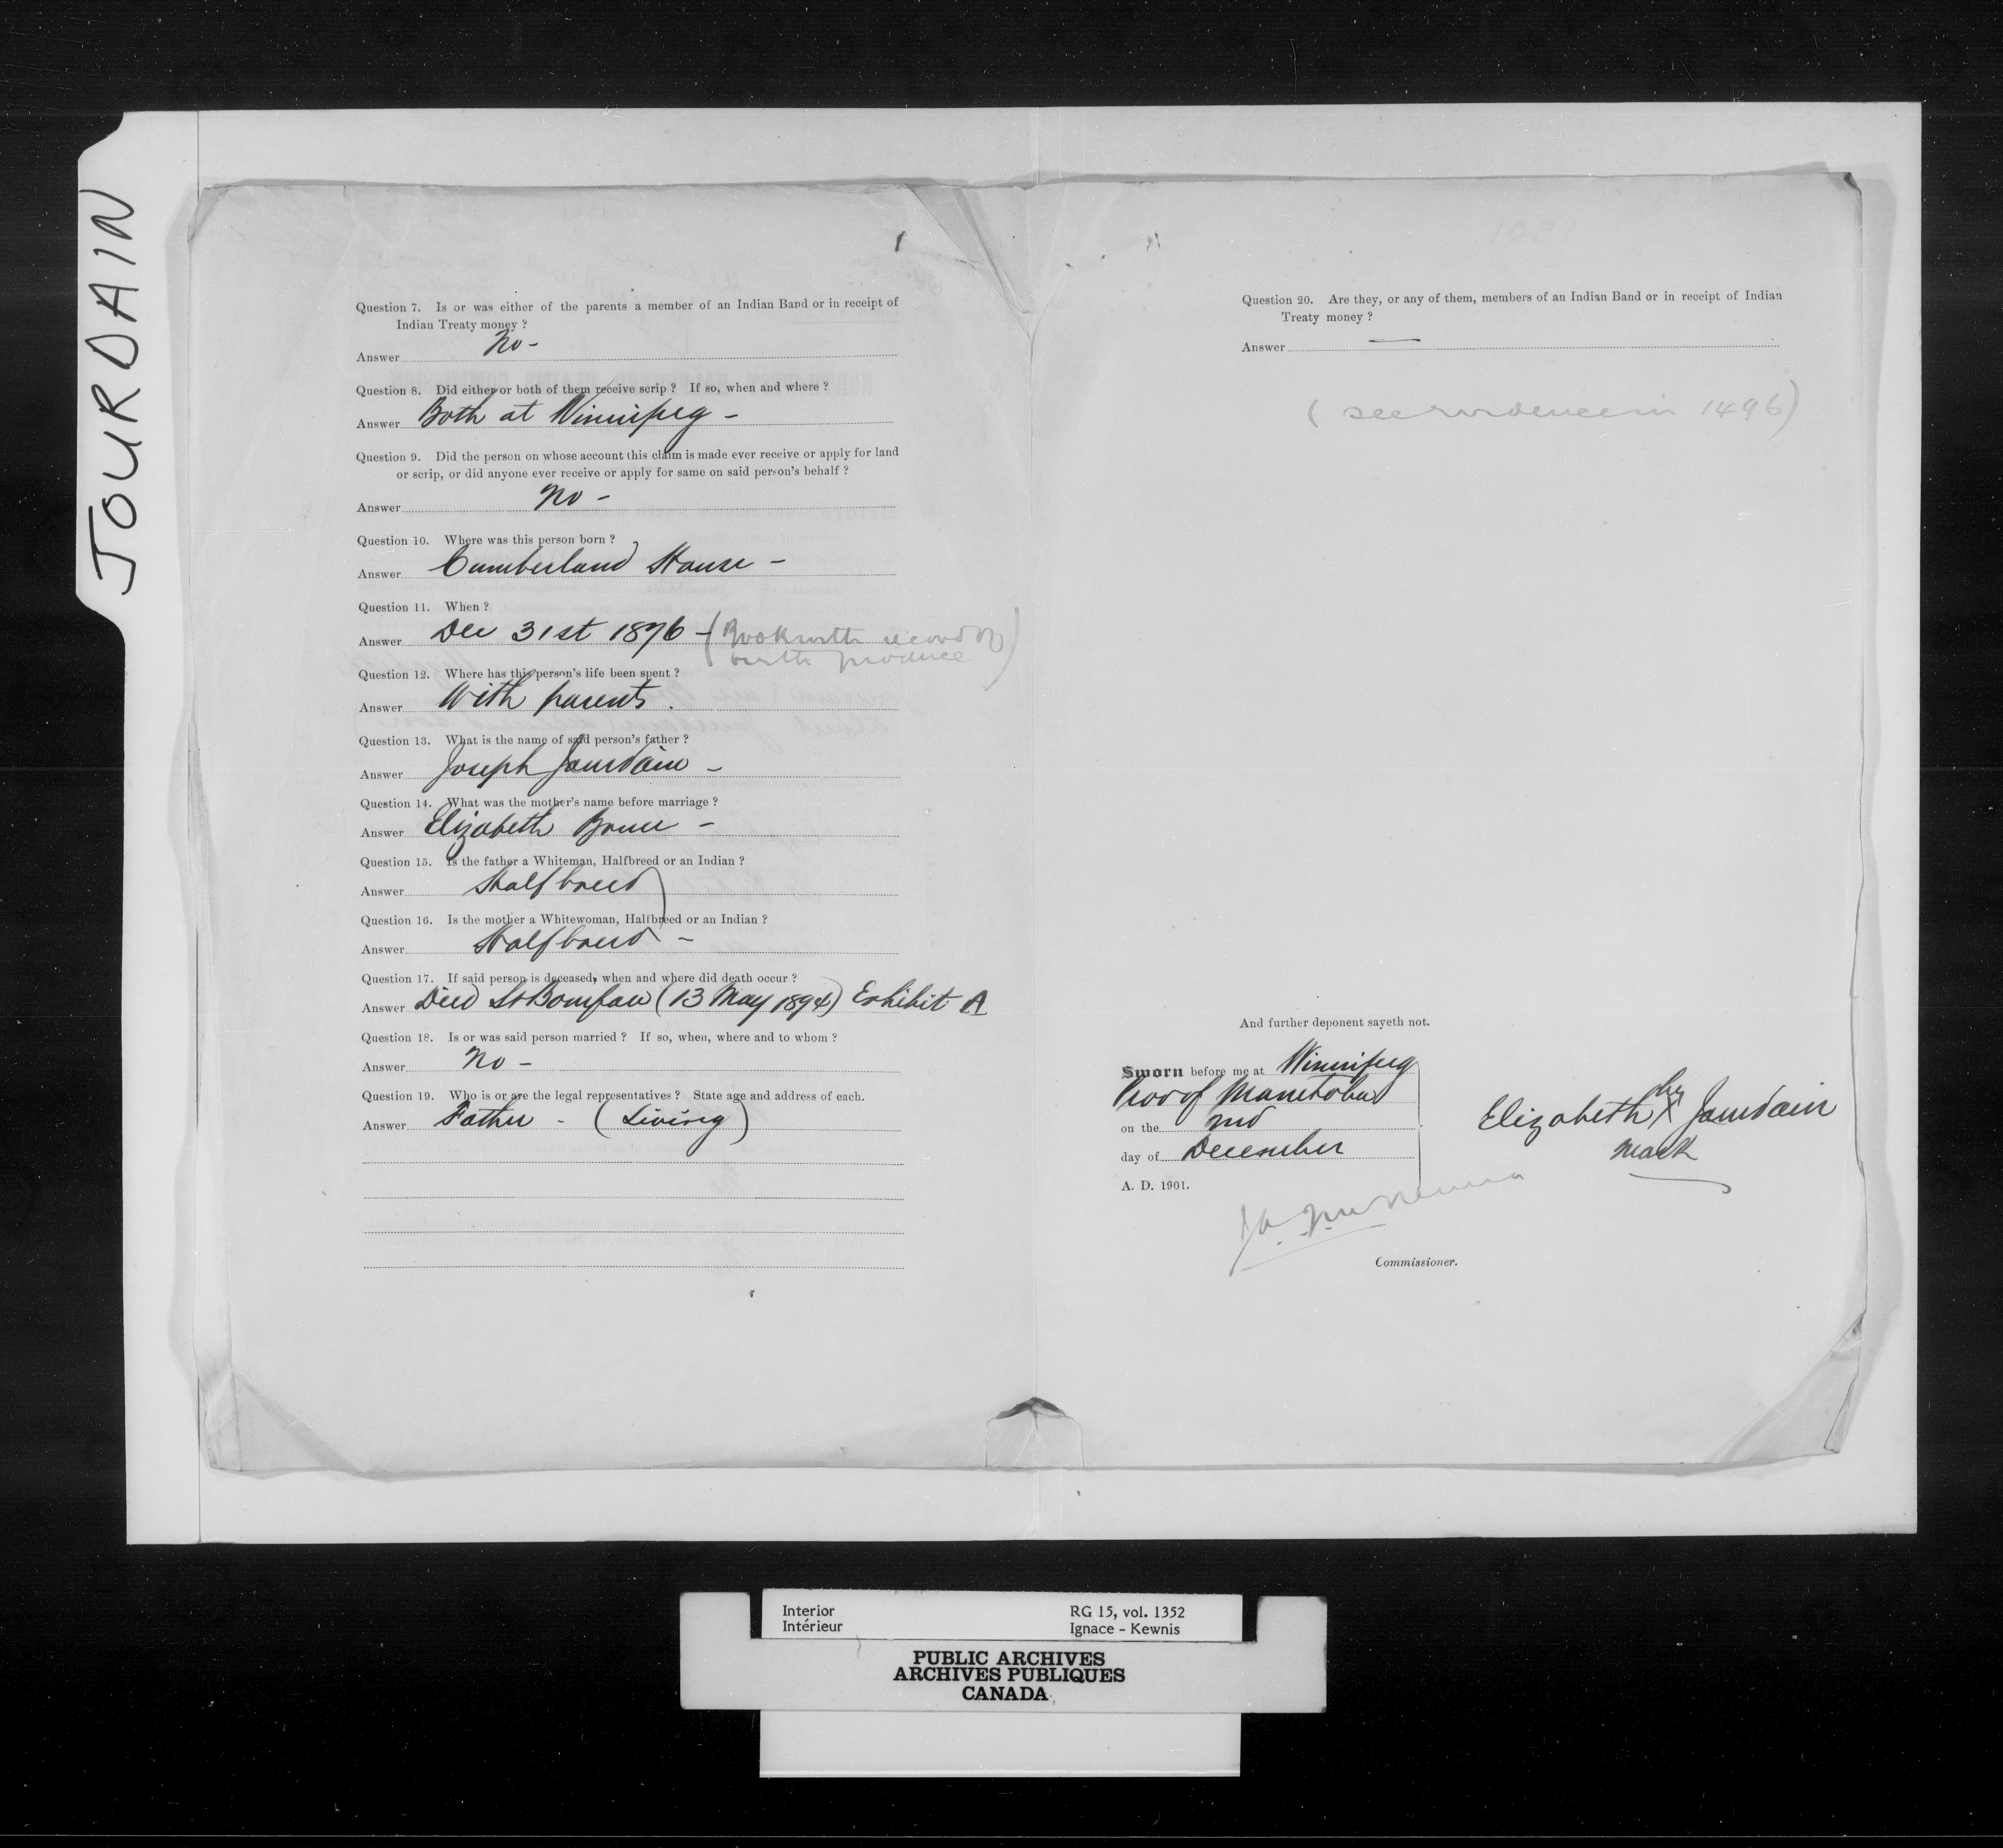 JOURDAIN
Question 7. Is or was either of the parents a member of an Indian Band or in receipt of
Indian Treaty money ?
Answer No -
Question 8. Did either or both of them receive scrip ? If so, when and where ?
Answer Both at Winnipeg -
Question 9. Did the person on whose account this claim is made ever receive or apply for land
or scrip, or did anyone ever receive or apply for same on said person's behalf ?
Answer No -
Question 10. Where was this person born ?
Answer Cumberland House -
Question 11. When ?
Answer Dec 31st 1876 - (Book with record of
birth produce)
Question 12. Where has this person's life been spent ?
Answer With parents.
Question 13. What is the name of said person's father ?
Answer Joseph Jourdain -
Question 14. What was the mother's name before marriage ?
Answer Elizabeth Bruce -
Question 15. Is the father a Whiteman, Halfbreed or an Indian ?
Answer Halfbreed
Question 16. Is the mother a Whitewoman, Halfbreed or an Indian ?
Answer Halfbreed -
Question 17. If said person is deceased, when and where did death occur ?
Answer Died St Boniface (13 May 1894) Exhibit A
Question 18. Is or was said person married ? If so, when, where and to whom ?
Answer No -
Question 19. Who is or are the legal representatives ? State age and address of each.
Answer Father - (Living)
Question 20. Are they, or any of them, members of an Indian Band or in receipt of Indian
Treaty money ?
Answer —
( see evidence in 1496)
And further deponent sayeth not.
Sworn before me at Winnipeg
Prov of Manitoba
on the 2nd
day of December
A. D. 1901.
Elizabeth her X Jourdain
mark
Commissioner.
Interior
Intérieur
RG 15, vol. 1352
Ignace - Kewnis
PUBLIC ARCHIVES
ARCHIVES PUBLIQUES
CANADA